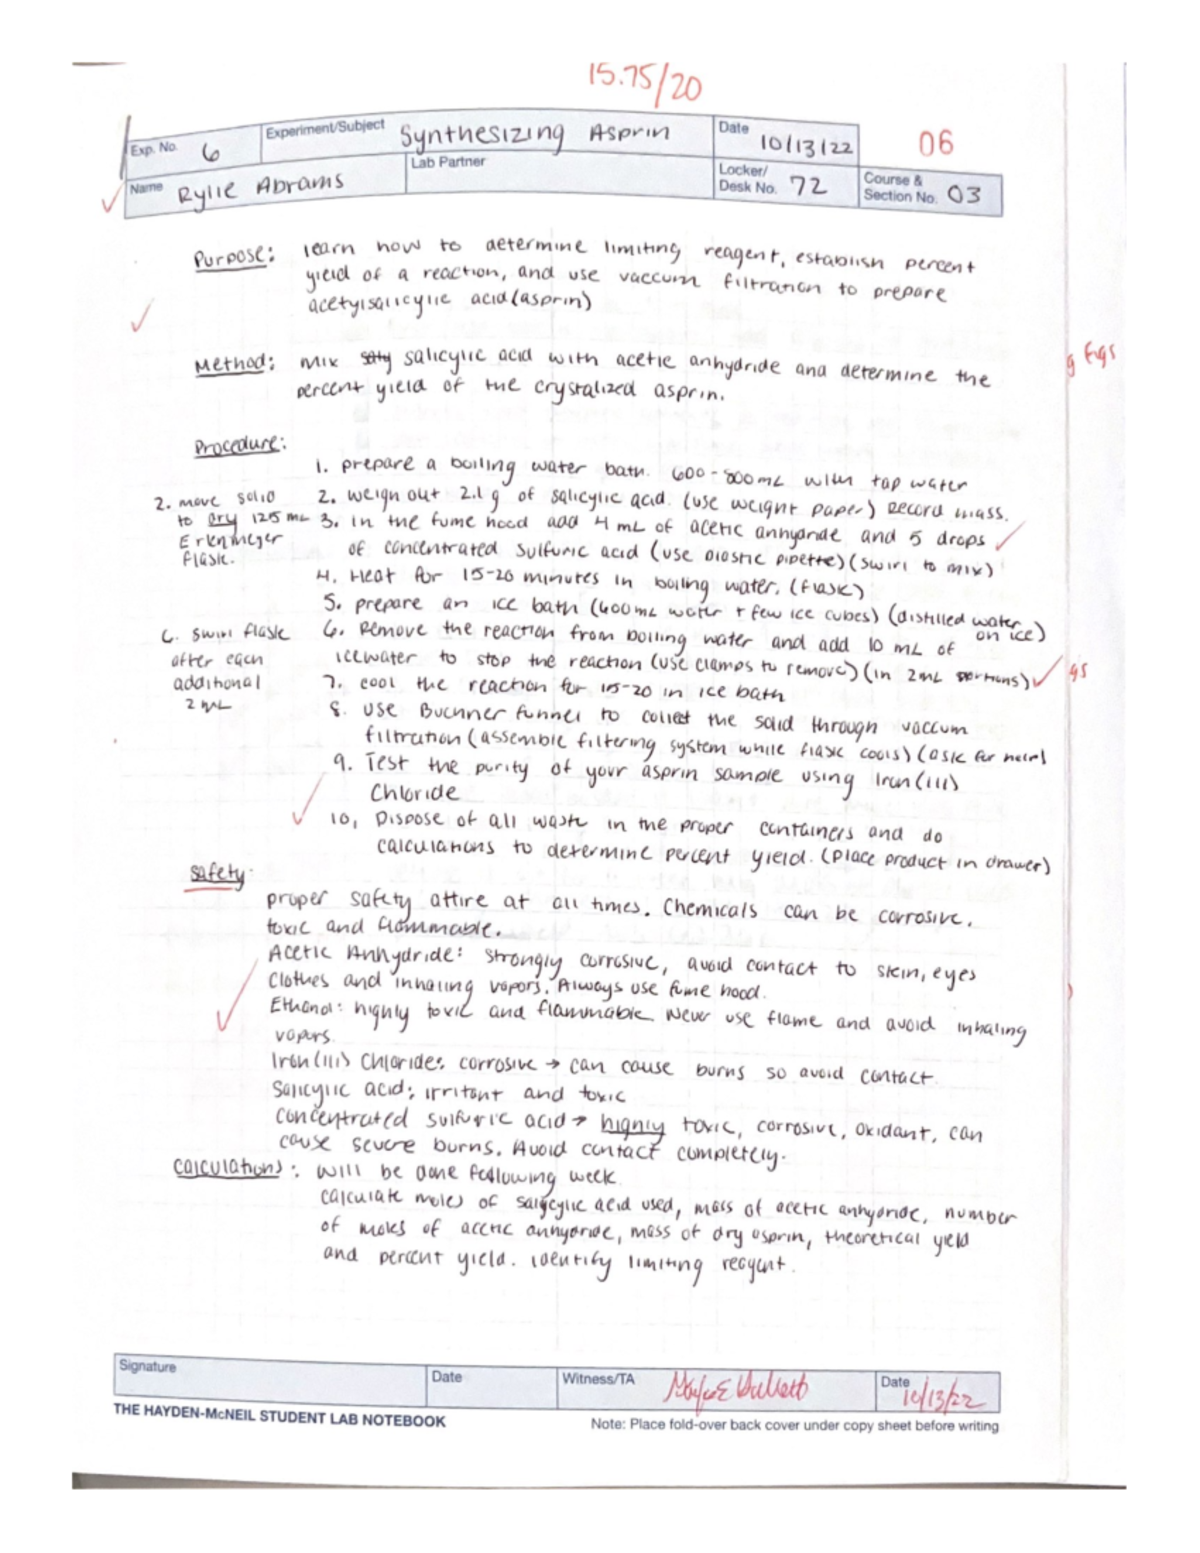 15.75/20
Exp. No. 6 Experiment/Subject Synthesizing Asprin Date 10/13/22 06
Name Rylie Abrams Lab Partner Locker/ Desk No. 72 Course & Section No. 03
Purpose: learn how to determine limiting reagent, establish percent
yield of a reaction, and use vaccum filtration to prepare
acetylsalicylic acid (asprin)
Method: mix salicylic acid with acetic anhydride and determine the
percent yield of the crystalized asprin.
g figs
Procedure:
1. prepare a boiling water bath. 600-800mL with tap water
2. weigh out 2.1 g of salicylic acid. (use weight paper) Record mass.
2. move solid
to dry 125 mL
Erlenmeyer
flask.
3. in the fume hood add 4 mL of acetic anhydride and 5 drops
of concentrated sulfuric acid (use plastic pipette) (swirl to mix)
4. Heat for 15-20 minutes in boiling water. (flask)
5. prepare an ice bath (400mL water + few ice cubes) (distilled water
on ice)
6. Remove the reaction from boiling water and add 10 mL of
icewater to stop the reaction (use clamps to remove) (in 2mL portions)
6. swirl flask
after each
additional
2 mL
gs
7. cool the reaction for 15-20 in ice bath
8. use Buchner funnel to collect the solid through vaccum
filtration (assemble filtering system while flask cools) (ask for help)
9. Test the purity of your asprin sample using Iron(III)
Chloride
10. Dispose of all waste in the proper containers and do
calculations to determine percent yield. (place product in drawer)
Safety:
proper safety attire at all times. Chemicals can be corrosive,
toxic and flammable.
Acetic Anhydride: strongly corrosive, avoid contact to skin, eyes
clothes and inhaling vapors. Always use fume hood.
Ethanol: highly toxic and flammable. Never use flame and avoid inhaling
vapors.
Iron(III) Chloride: corrosive → can cause burns so avoid contact.
Salicylic acid: irritant and toxic
concentrated sulfuric acid → highly toxic, corrosive, oxidant, can
cause severe burns. Avoid contact completely.
Calculations: will be done following week.
calculate moles of salicylic acid used, mass of acetic anhydride, number
of moles of acetic anhydride, mass of dry asprin, theoretical yield
and percent yield. identify limiting reagent.
Signature Date Witness/TA Date 10/13/22
THE HAYDEN-McNEIL STUDENT LAB NOTEBOOK Note: Place fold-over back cover under copy sheet before writing